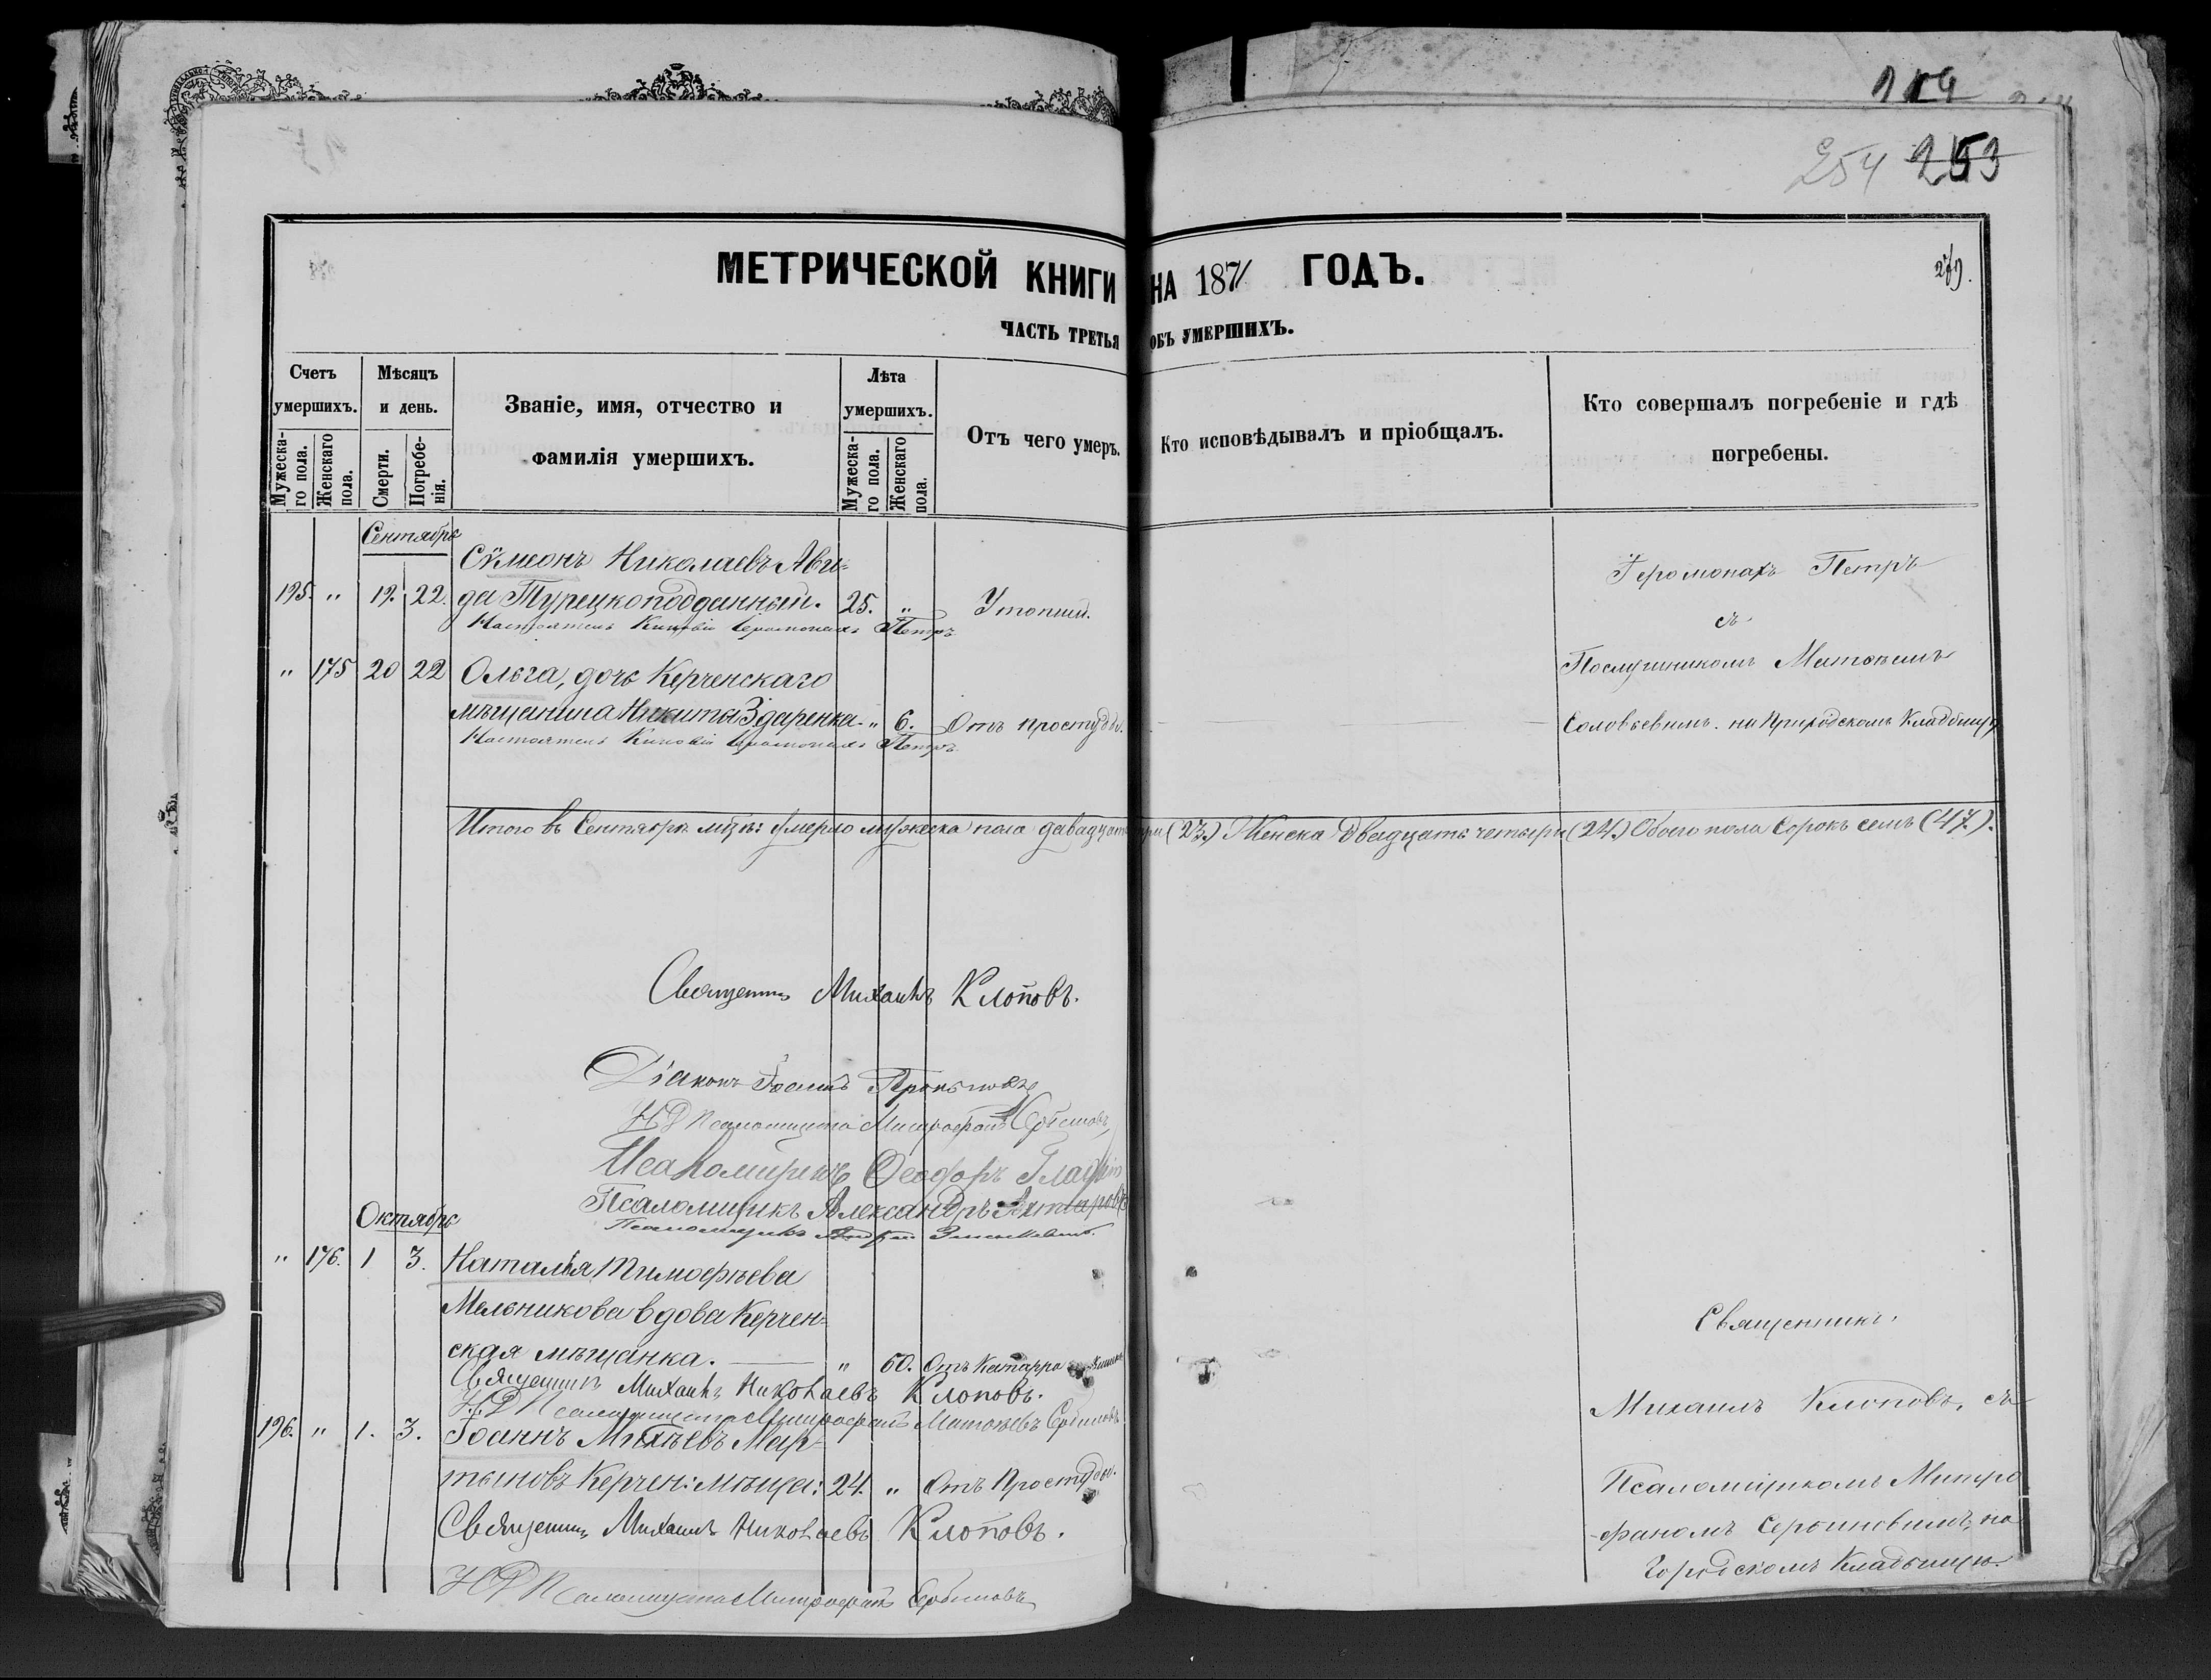 254 253
МЕТРИЧЕСКОЙ КНИГИ НА 1871 ГОДЪ.
279.
ЧАСТЬ ТРЕТЬЯ ОБЪ УМЕРШИХЪ.
Счетъ умершихъ.
Мужеска-го пола.
Женскаго пола.
Мѣсяцъ и день.
Смерти.
Погребе-нія.
Званіе, имя, отчество и
фамилія умершихъ.
Лѣта умершихъ.
Мужеска-го пола.
Женскаго пола.
Отъ чего умеръ.
Кто исповѣдывалъ и пріобщалъ.
Кто совершалъ погребеніе и гдѣ
погребены.
Сентябрь
Сѵмеонъ Николаевъ Ави-
195. " 19. 22. да Турецкоподданный. 25. "
Настоятель Киновіи Іеромонахъ Петръ
Іеромонахъ Петръ
съ
" 175 20 22 Ольга, дочь Керченскаго
мѣщанина Никиты Здаренка. " 6. Отъ простуды.
Настоятель Киновіи Іеромонахъ Петръ
Послушникомъ Матѳеемъ
Соловьевымъ. на Городскомъ Кладбищѣ
Итого въ Сентябрѣ мцѣ: умерло мужеска пола двадцать три (23.) Женска двадцать четыри (24.) Обоего пола Сорокъ семъ (47.).
Священникъ Михаилъ Клоповъ.
Діаконъ Іоаннъ
И Д Псаломщика Митрофанъ Сербиновъ
Псаломщикъ Ѳеодоръ
Псаломщикъ Александръ Ахтыровъ
Псаломщикъ Андрей
Октябрь
" 176. 1 3. Наталья Тимофѣева
Мельникова вдова Керчен-
ская мѣщанка. " 60. Отъ Катарра
Священникъ Михаилъ Николаевъ Клоповъ.
И Д Псаломщика Митрофанъ Матвѣевъ Сербиновъ
196. " 1. 3. Іоаннъ Михѣевъ Мар-
тыновъ Керчен: мѣща: 24. " Отъ Простуды.
Священникъ Михаилъ Николаевъ Клоповъ.
И Д Псаломщика Митрофанъ Сербиновъ
Священникъ
Михаилъ Клоповъ, съ
Псаломщикомъ Митро
-фаномъ Сербиновымъ, на
Городскомъ Кладбищѣ.